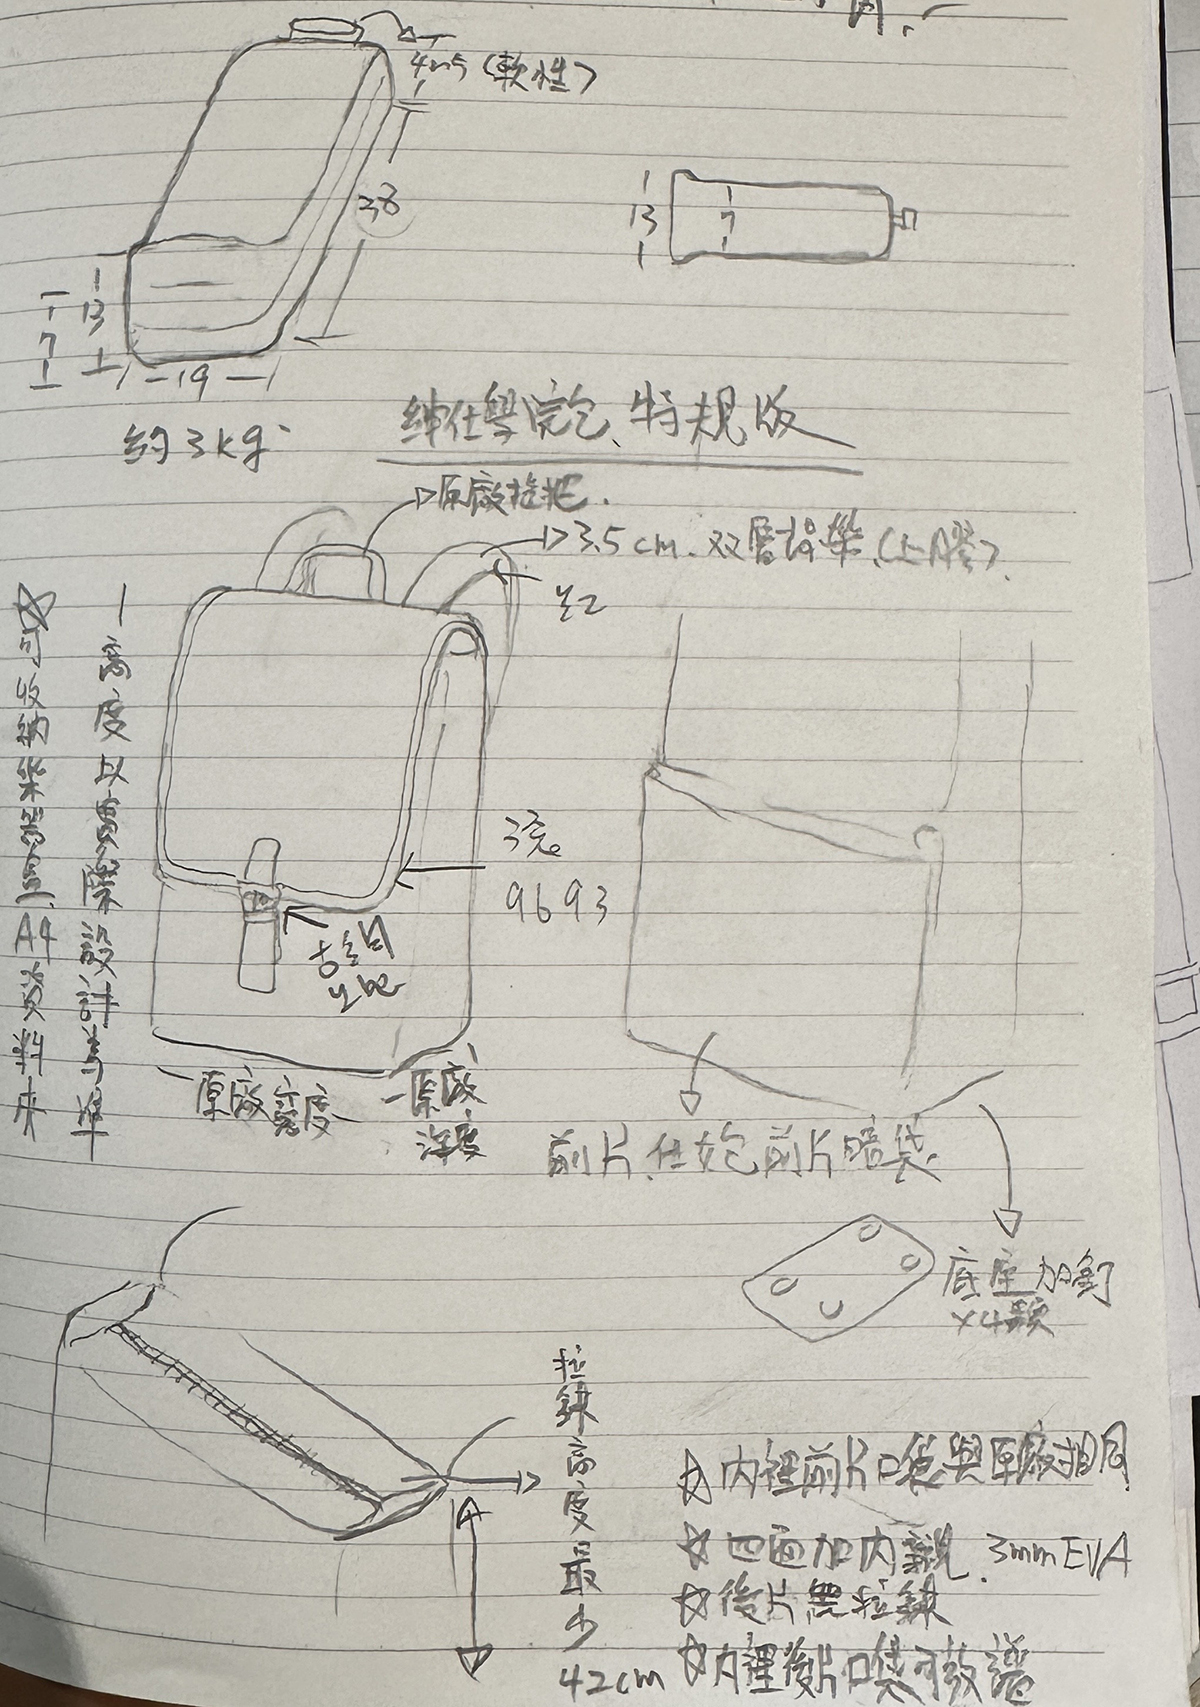 4~5 (軟性)
38
13
7
13
7
19
約3kg
紳仕學院包、特規版
原廠拉把.
3.5cm. 双層揹帶(上膠).
☆可收納樂器與A4資料夾
高度以實際設計為準
3亮
9693
古銅
原廠寬度
原廠深度
前片、仕女包前片暗袋.
底座加釘
x4顆
拉鍊高度最少
42cm
☆內裡前片口袋與原廠相同
☆四面加內襯. 3mm EVA
☆後片無拉鍊
☆內裡後片口袋可放譜